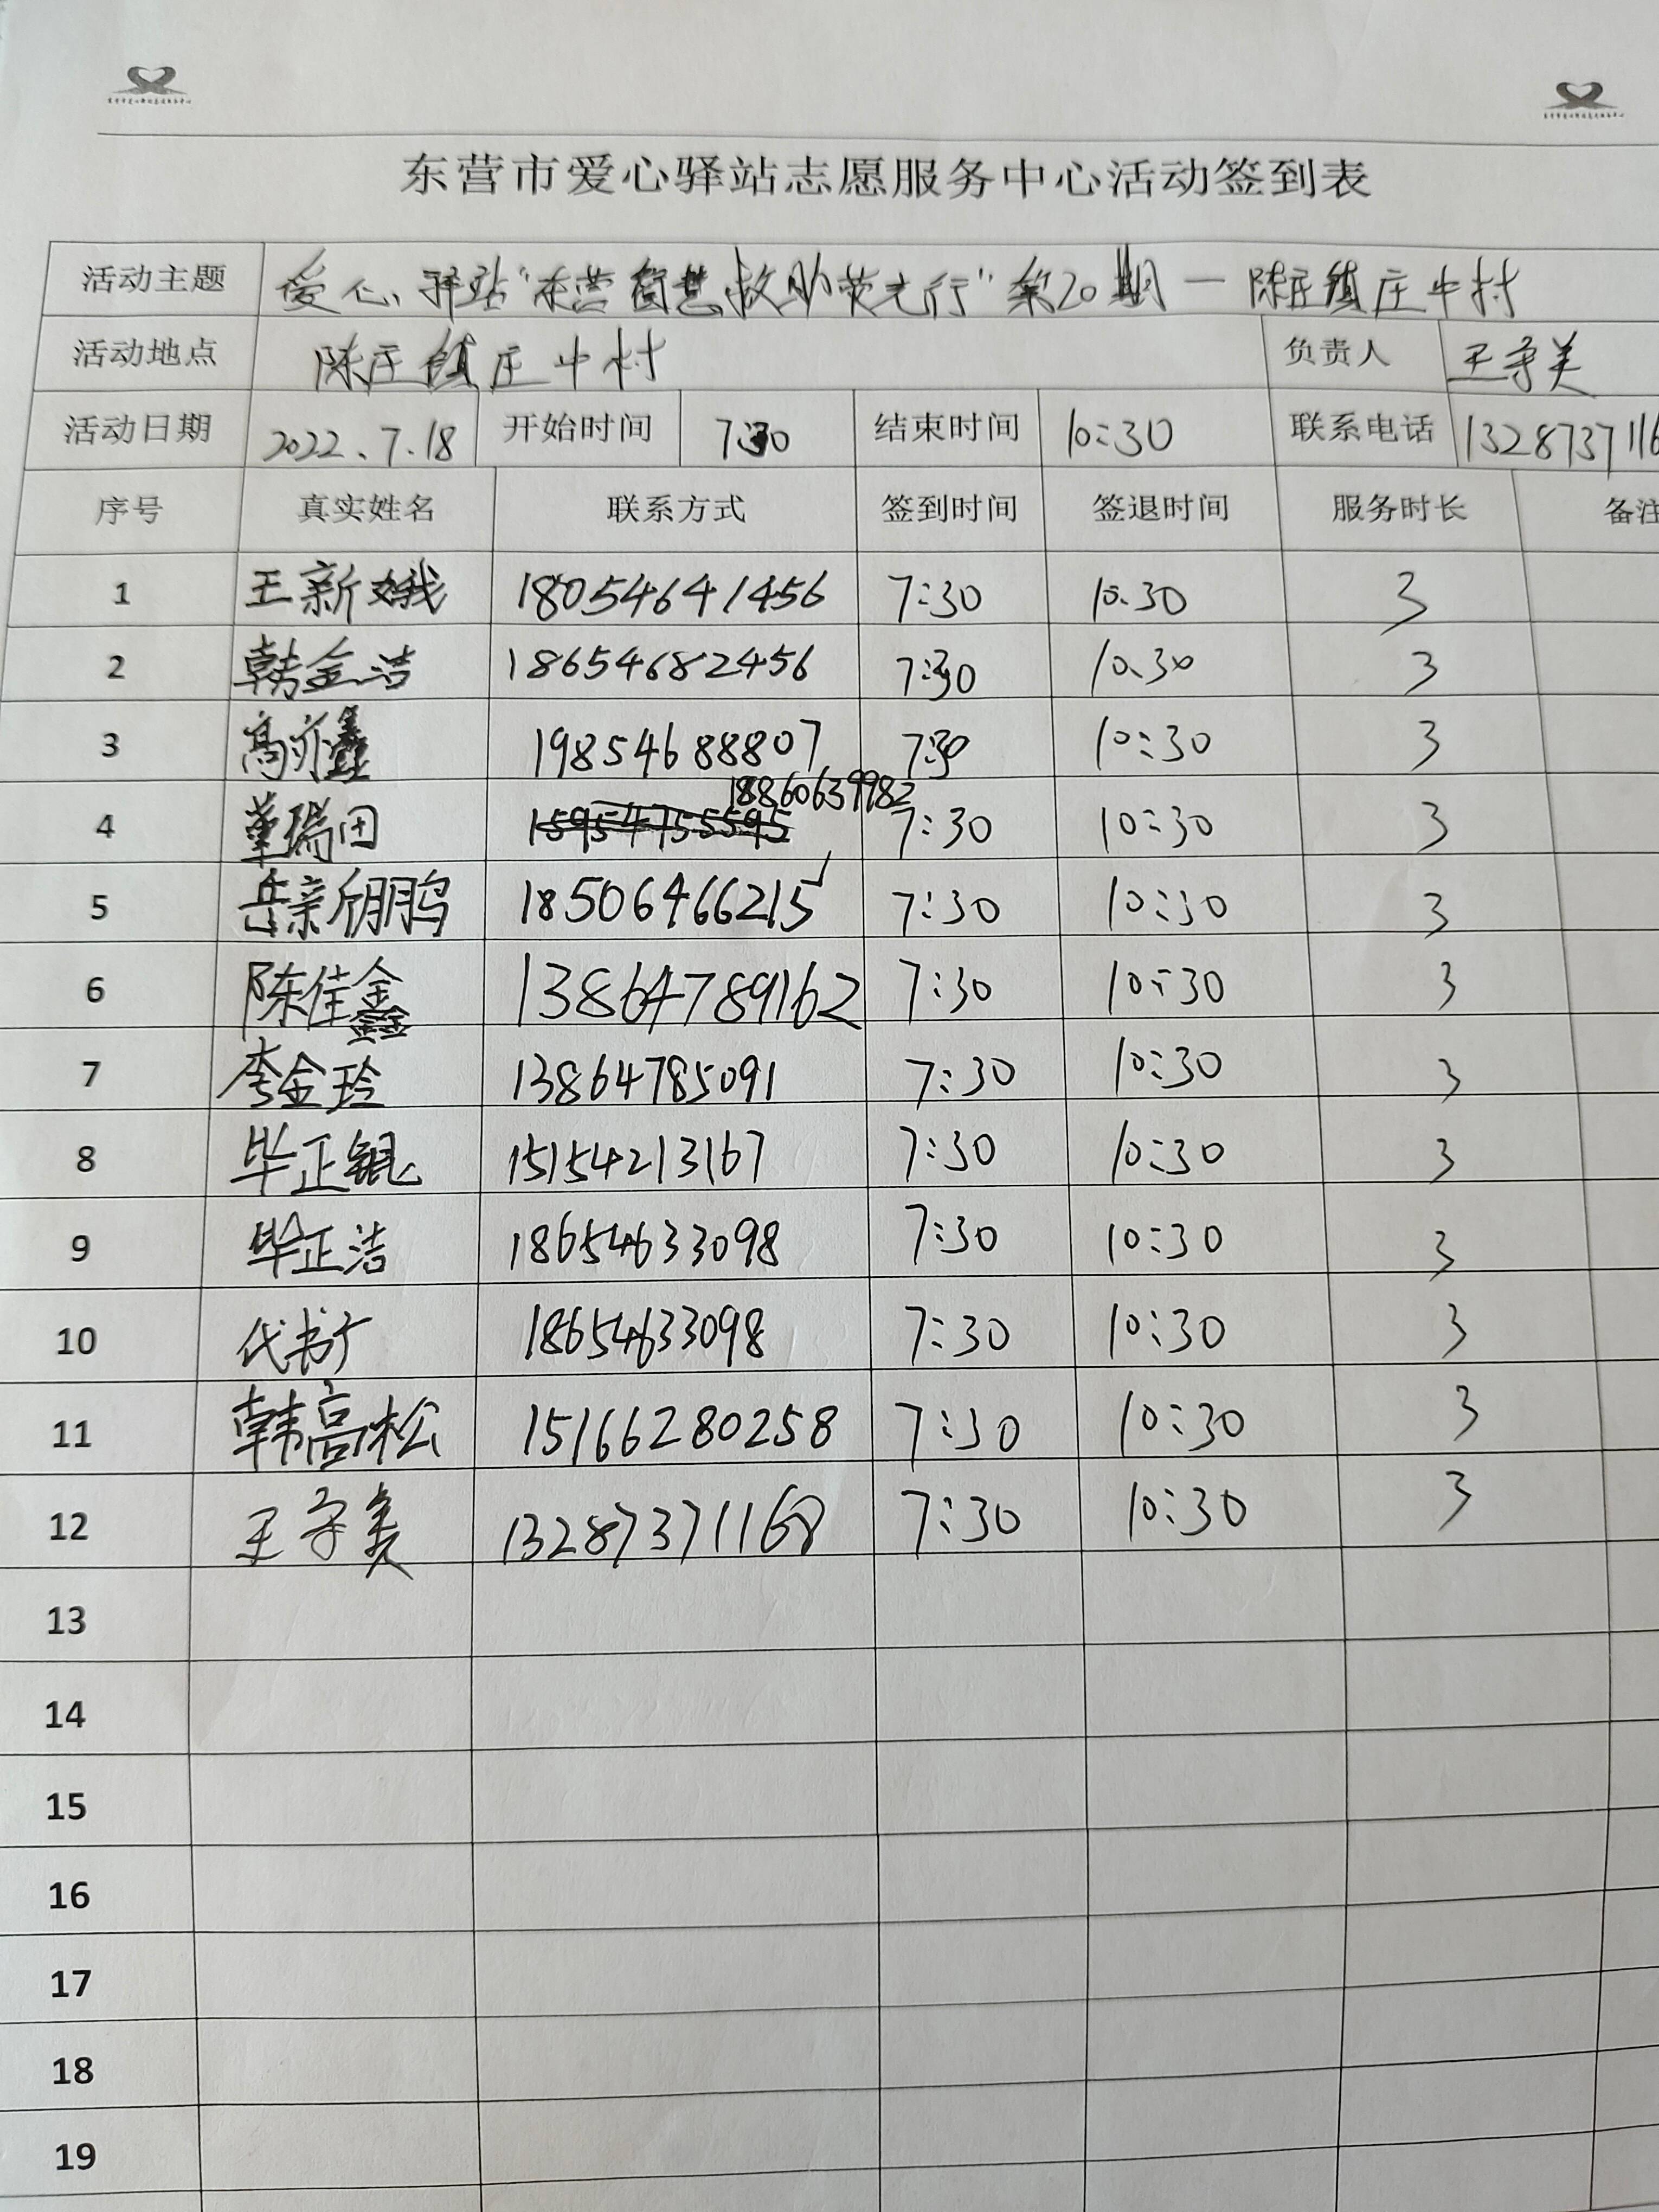 东营市爱心驿站志愿服务中心活动签到表
活动主题 爱心驿站"东营智慧救助荧光行"第20期—陈庄镇庄中村
活动地点 陈庄镇庄中村 负责人 王守美
活动日期 2022.7.18 开始时间 7:30 结束时间 10:30 联系电话 1328737116
序号 真实姓名 联系方式 签到时间 签退时间 服务时长 备注
1 王新娥 18054641456 7:30 10:30 3
2 韩金洁 18654682456 7:30 10:30 3
3 高亦鑫 19854688807 7:30 10:30 3
18860639982
4 董瑞田 15954755595 7:30 10:30 3
5 岳新鹏 18506466215 7:30 10:30 3
6 陈佳鑫 13864789162 7:30 10:30 3
7 李金玲 13864785091 7:30 10:30 3
8 毕正锟 15154213167 7:30 10:30 3
9 毕正洁 18654633098 7:30 10:30 3
10 代书广 18654633098 7:30 10:30 3
11 韩高松 15166280258 7:30 10:30 3
12 王守美 13287371168 7:30 10:30 3
13
14
15
16
17
18
19